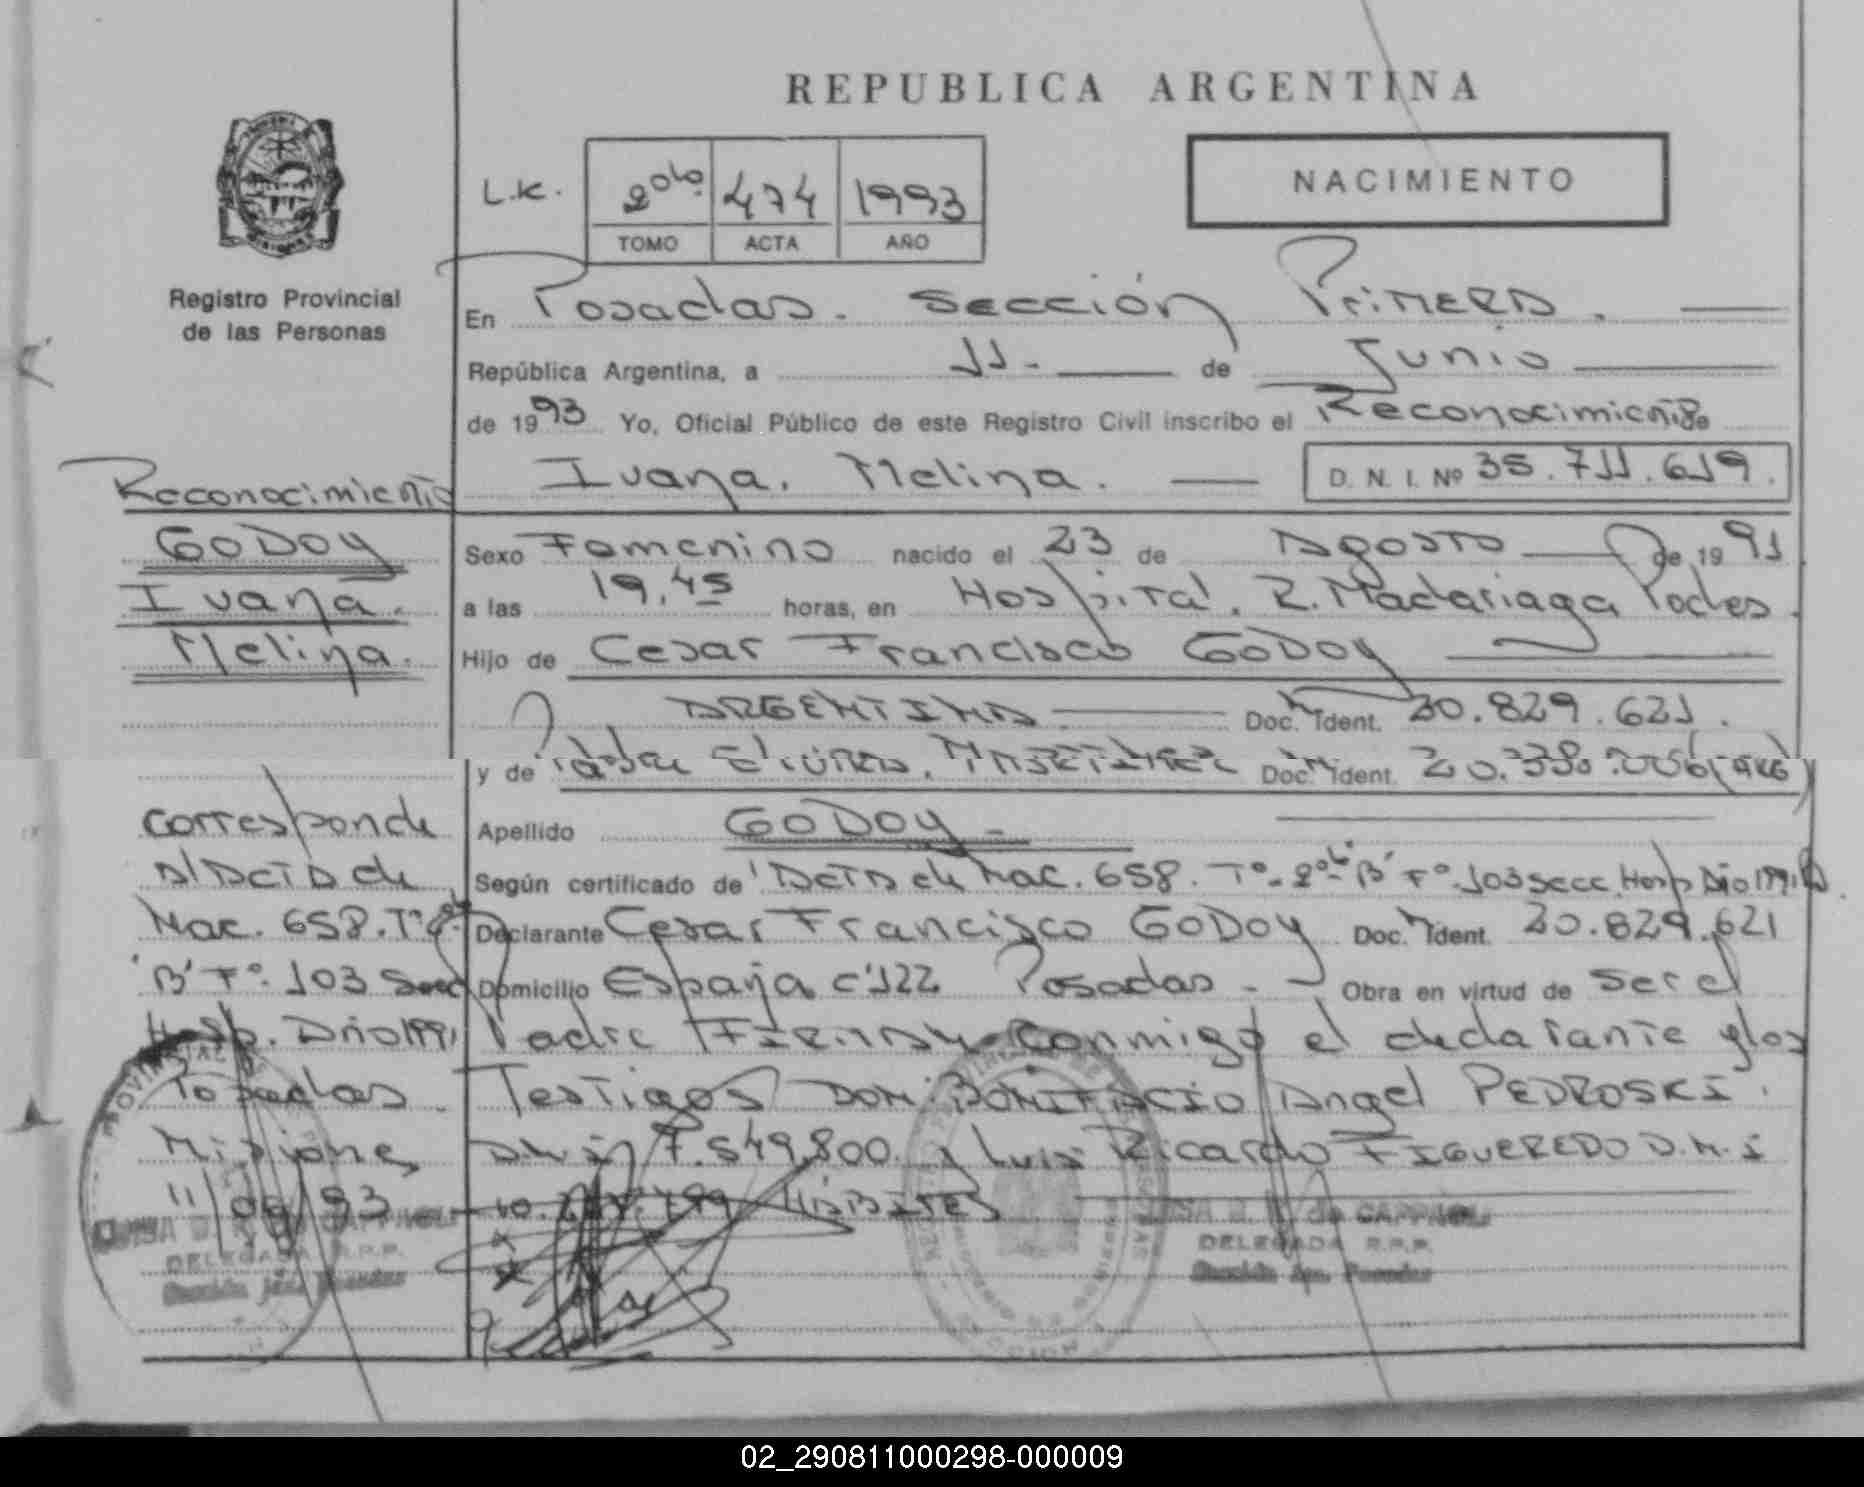 REPUBLICA ARGENTINA
NACIMIENTO
L.K. 2do. 474 1993
TOMO ACTA AÑO
Registro Provincial
de las Personas
En Posadas. Sección Primera.
República Argentina, a 11 - de Junio
de 1993 Yo, Oficial Público de este Registro Civil inscribo el Reconocimiento de
Ivana. Melina. D. N. I. Nº 35.711.619.
Reconocimiento
GODOY
Ivana.
Melina.
Sexo Femenino nacido el 23 de Agosto de 1991
a las 19,45 horas, en Hospital. R. Madariaga Podas.
Hijo de Cesar Francisco GODOY
ARGENTINA Doc. Ident. 20.829.621.
y de Elvira. MARTINEZ Doc. Ident. 20.338.
Apellido GODOY -
Según certificado de Acta de Nac. 658. Tº. 2do. 'B' Fº. 103 Secc. Hosp Año 1991
Declarante Cesar Francisco GODOY Doc. Ident. 20.829.621
Domicilio España c'122 Posadas - Obra en virtud de ser el
Padre FIRMAN conmigo el declarante y los
Testigos DON: BONIFACIO Angel PEDROSKI.
7.549.800. y Luis Ricardo FIGUEREDO D.N.I
HABILES
corresponde
A/ACTA de
Nac. 658. Tº 2do.
'B' Fº. 103 Secc
Hosp. Año 1991
Posadas
Misiones
11/06/93
de CAPPAGLI
DELEGADA R.P.P.
de CAPPAGLI
DELEGADA R.P.P.
02_290811000298-000009